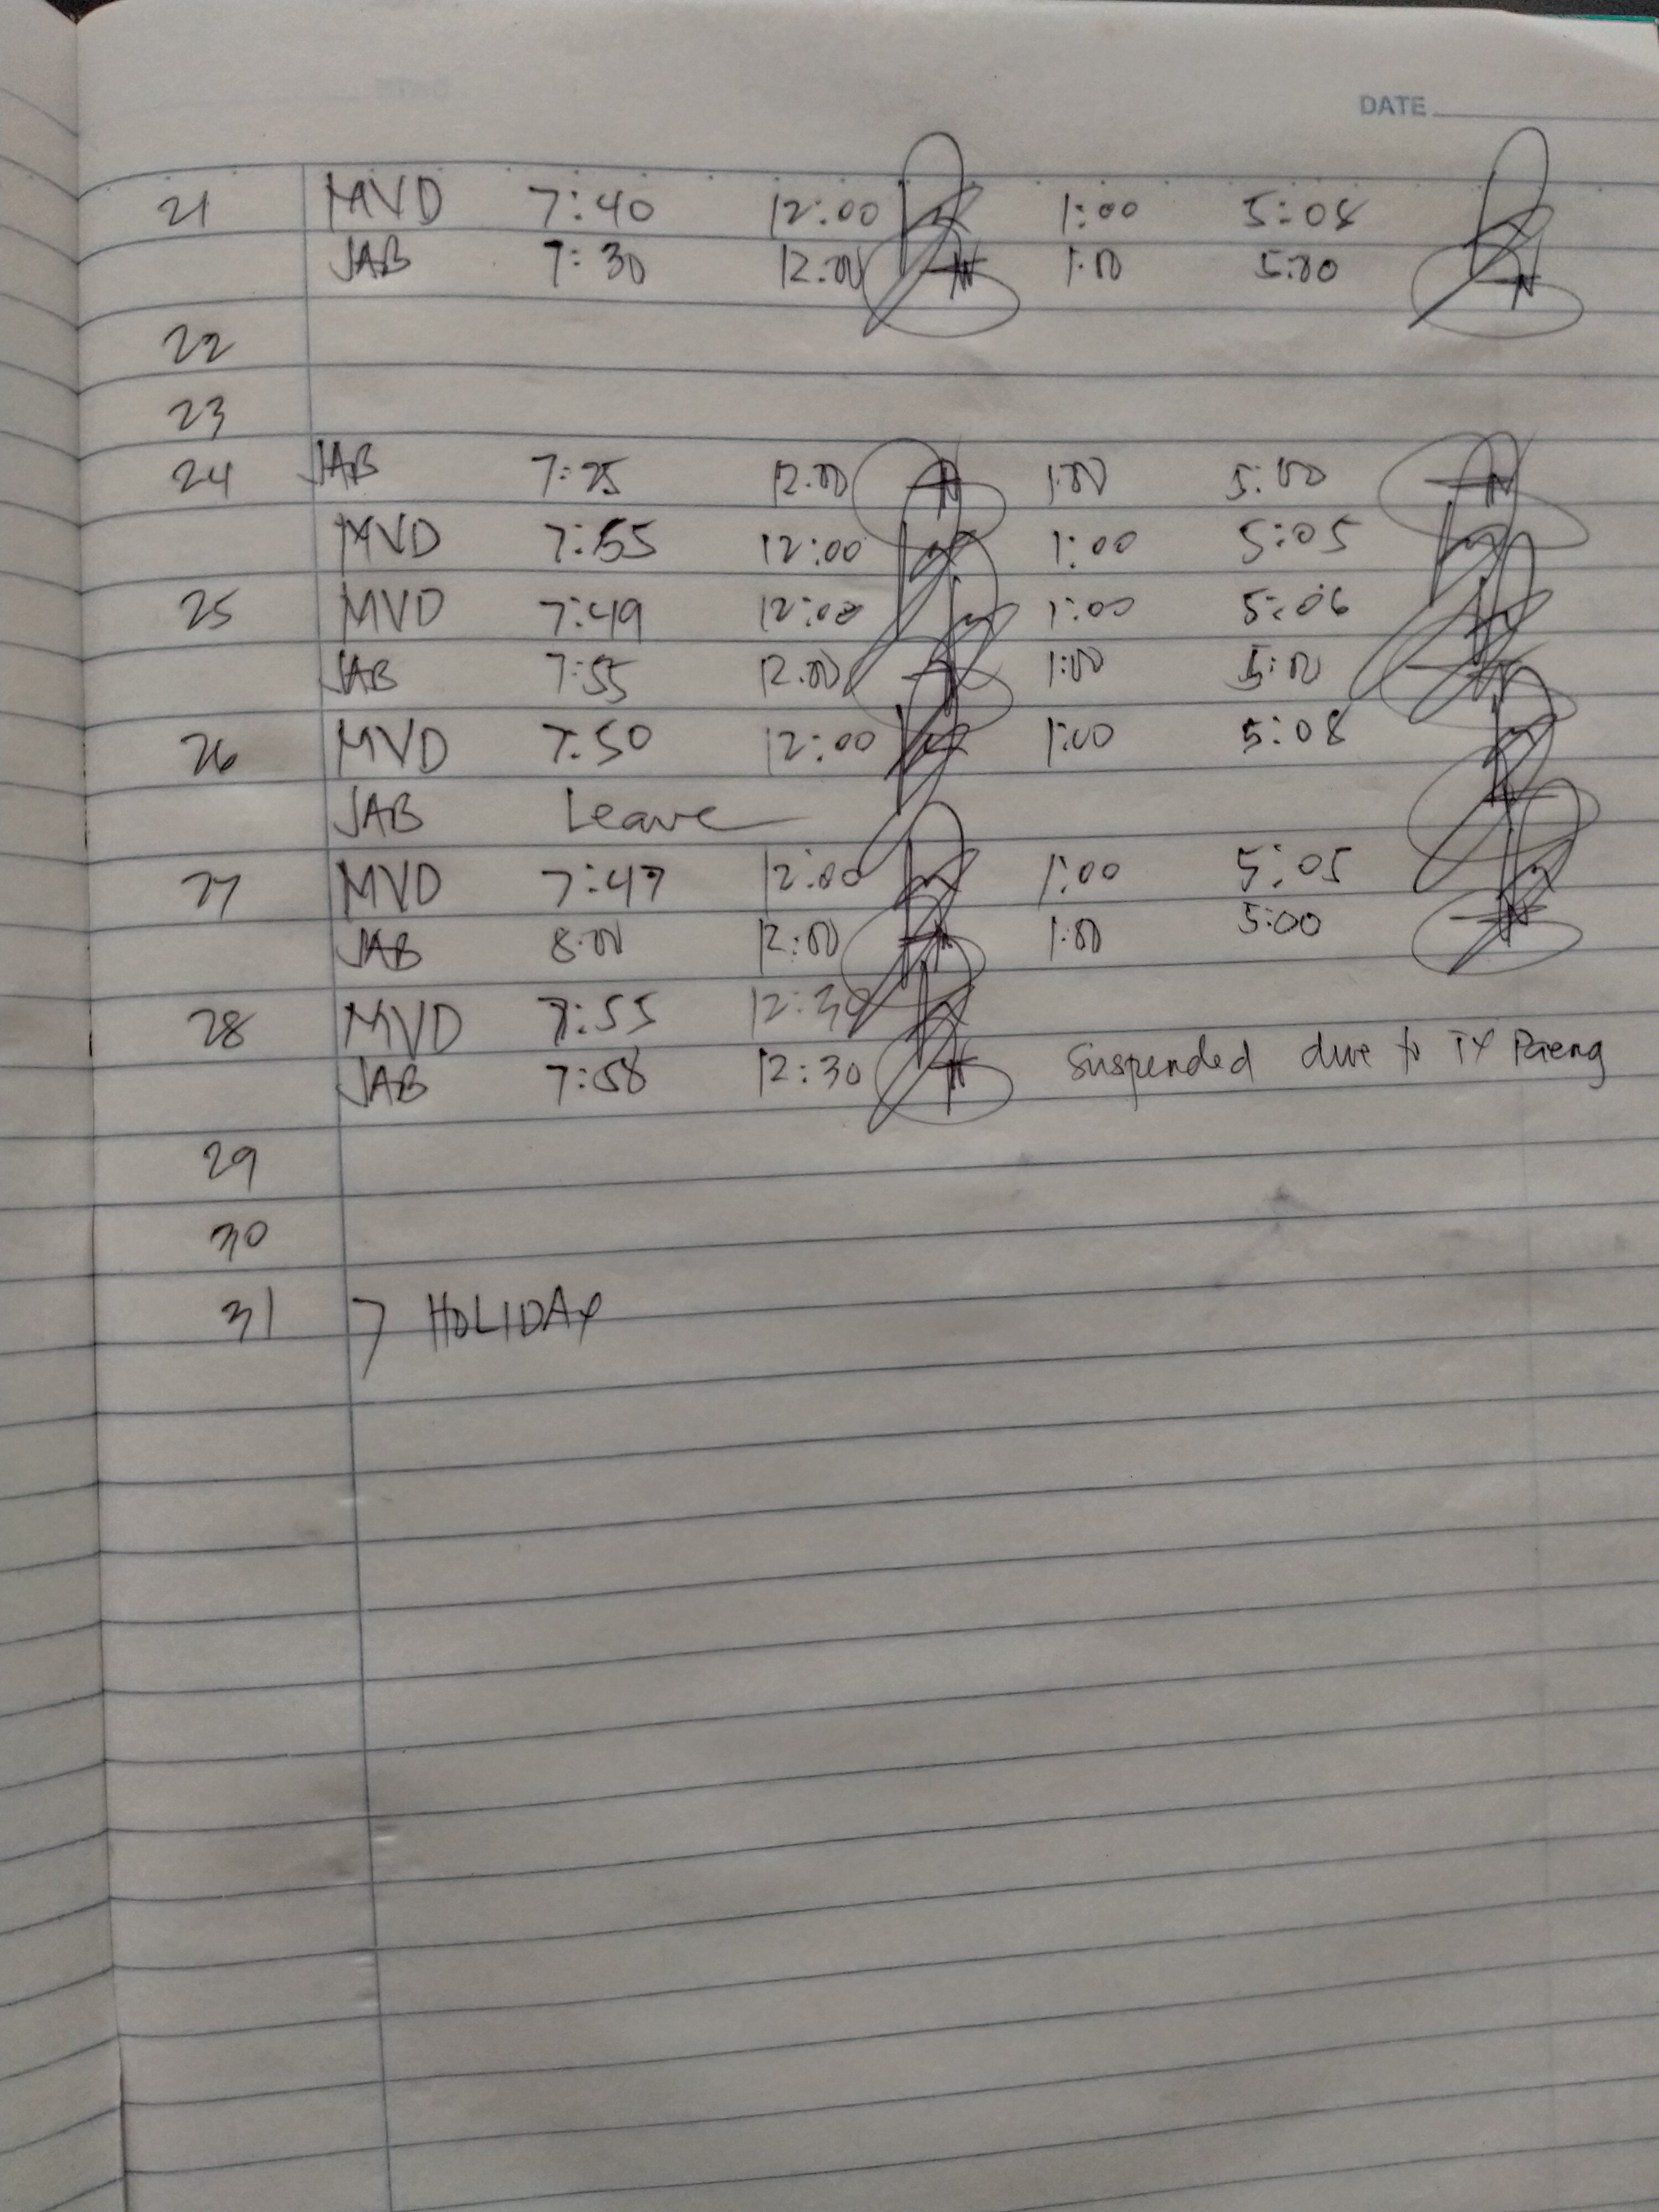 DATE
21 MVD 7:40 12:00 1:00 5:08
JAB 7:30 12:00 1:00 5:00
22
23
24 JAB 7:25 12:00 1:00 5:00
MVD 7:55 12:00 1:00 5:05
25 MVD 7:49 12:00 1:00 5:06
JAB 7:55 12:00 1:00 5:00
26 MVD 7:50 12:00 1:00 5:08
JAB Leave
27 MVD 7:47 12:00 1:00 5:05
JAB 8:00 12:00 1:00 5:00
28 MVD 7:55 12:30
JAB 7:58 12:30 Suspended due to TY Paeng
29
30
31 7 HOLIDAY